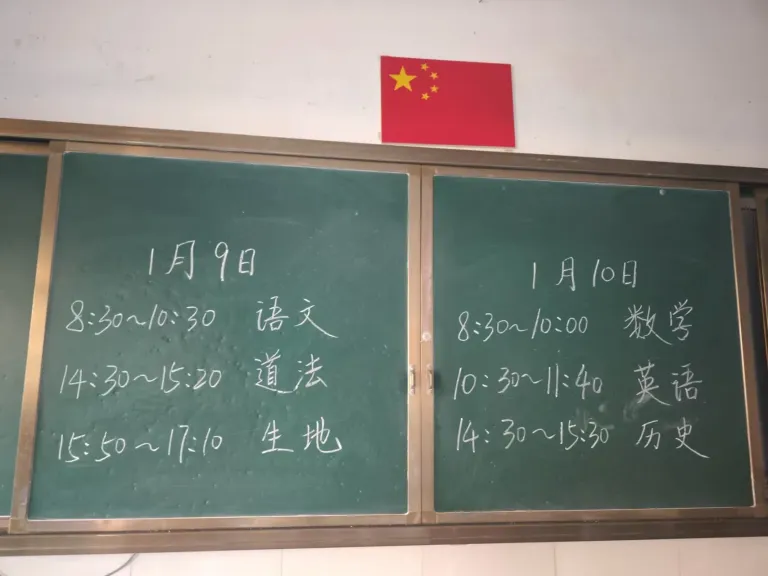 1月9日
8:30~10:30 语文
14:30~15:20 道法
15:50~17:10 生地
1月10日
8:30~10:00 数学
10:30~11:40 英语
14:30~15:30 历史